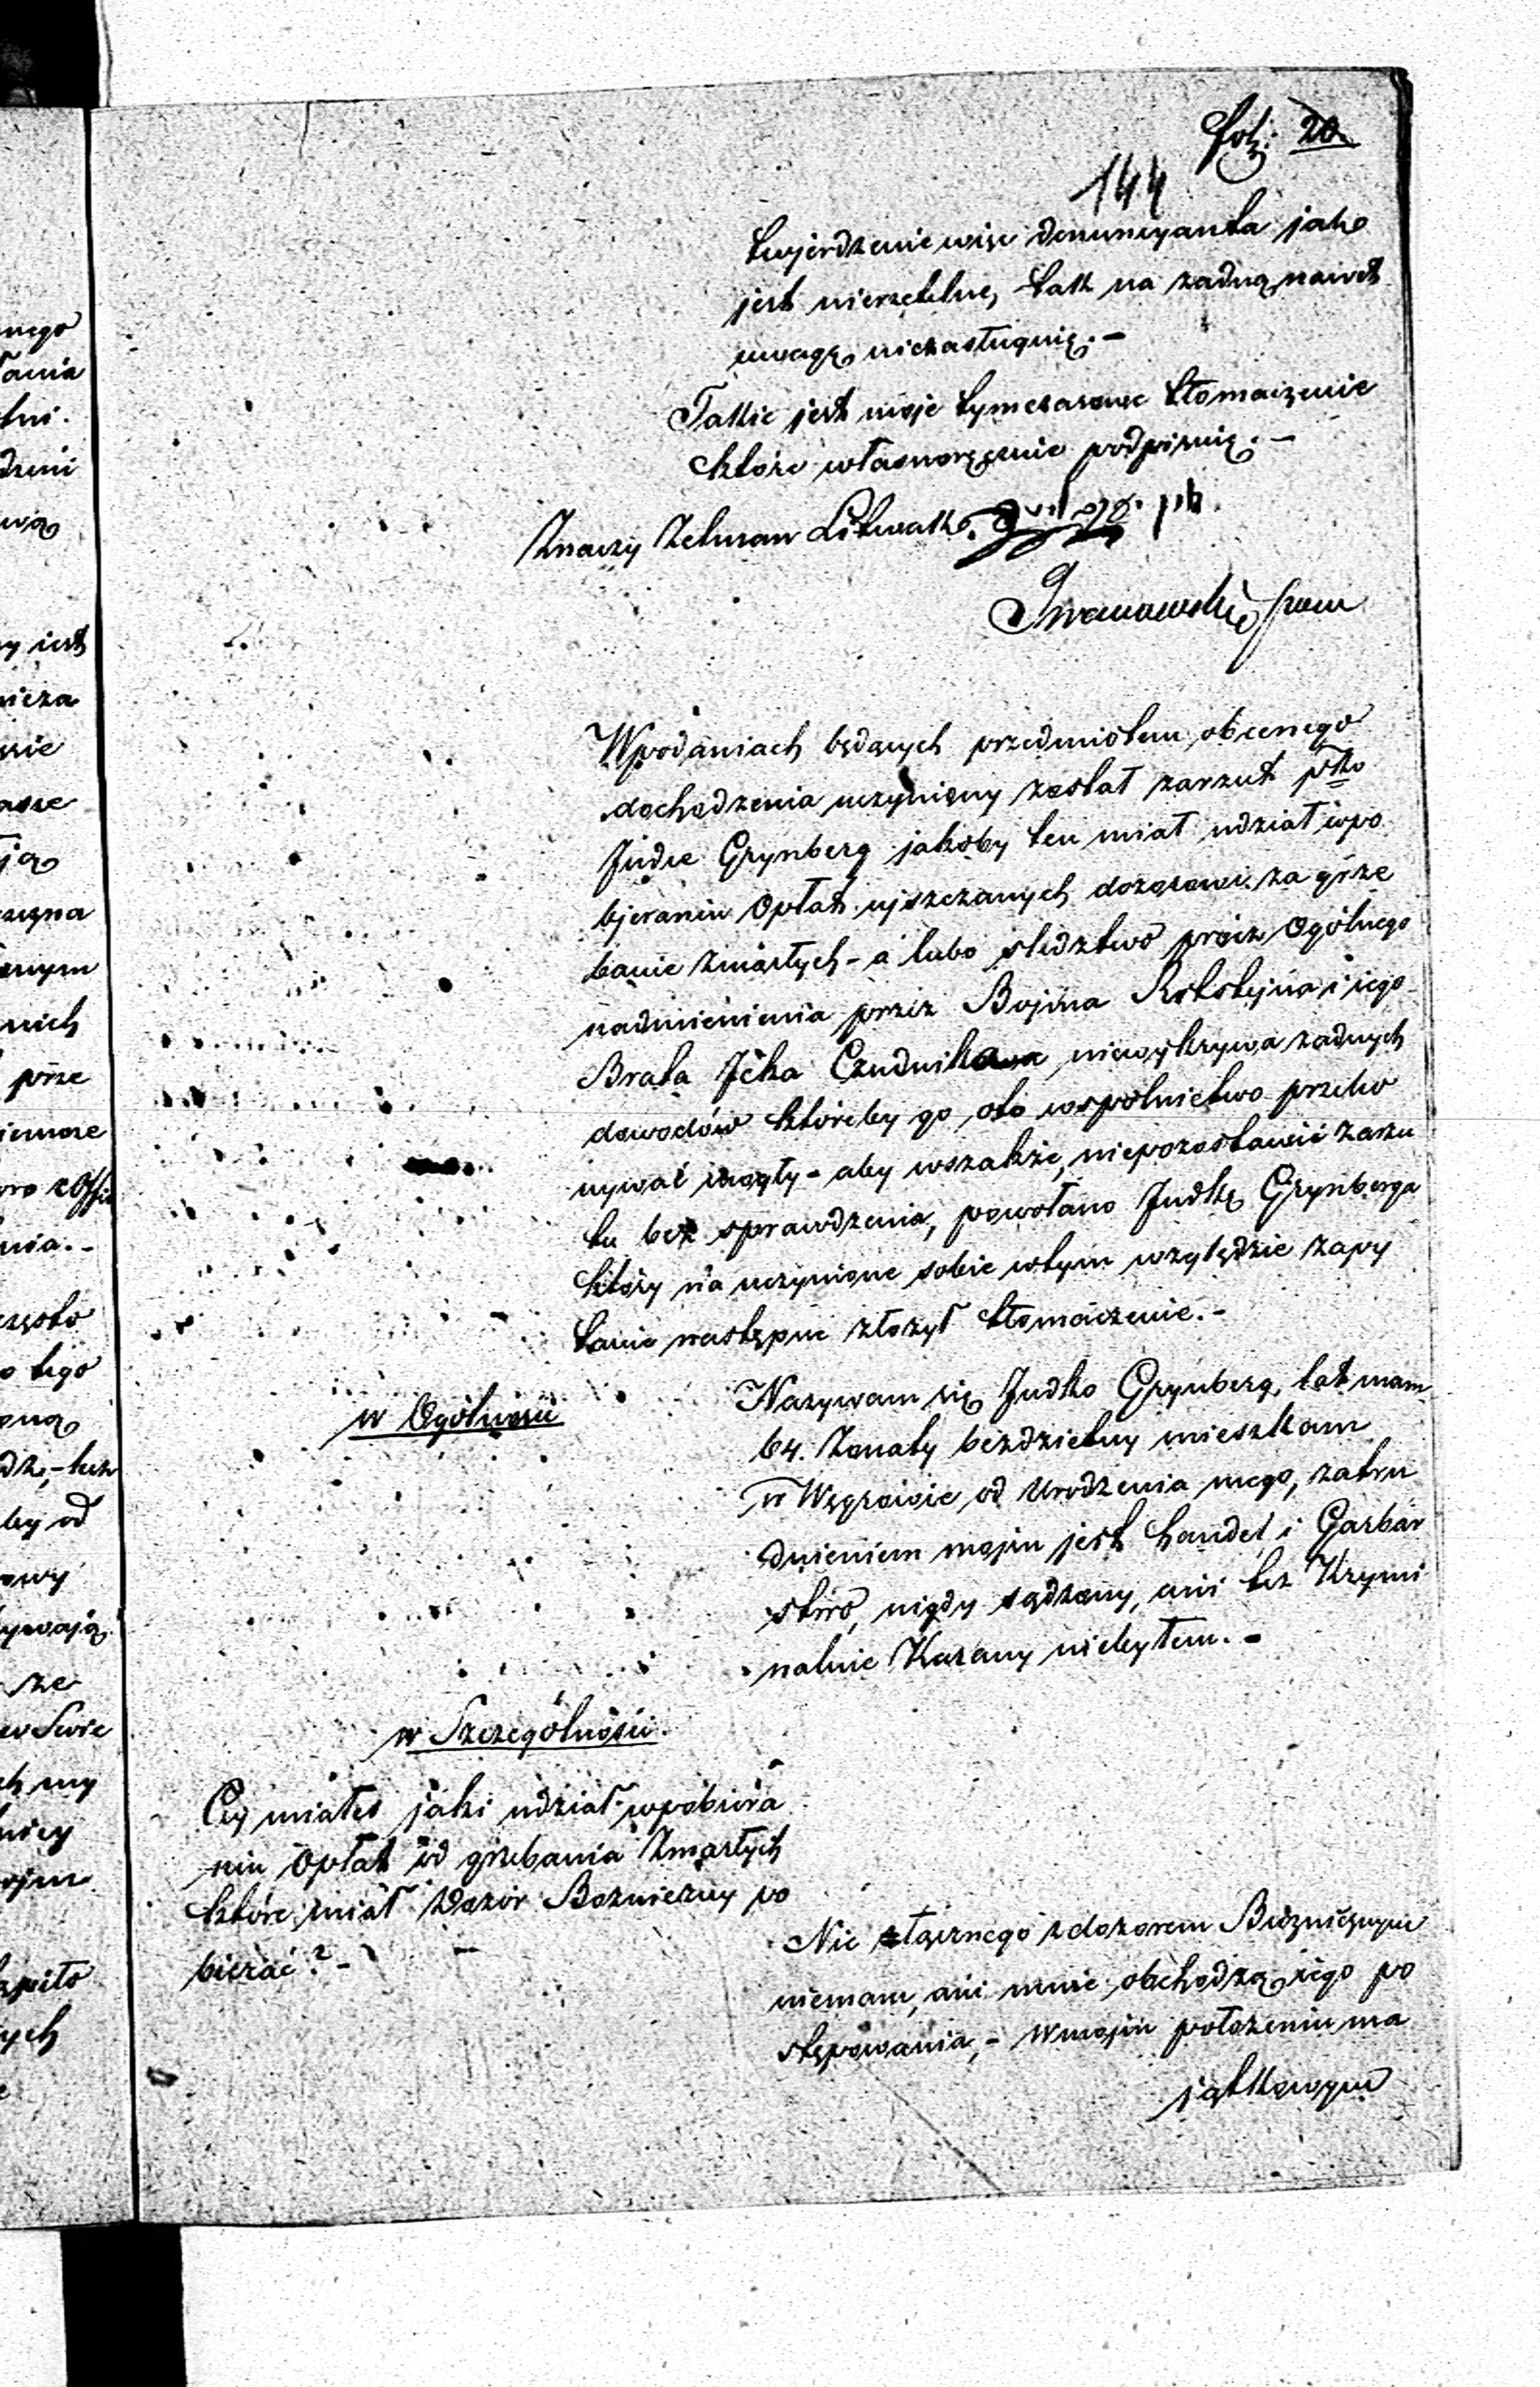 fol: 20
144
twjerdzenie więc denuncyanta jako
jest nierzetelne, tak na żadną nawet
uwagę niezasługuię.-
Takie jest moje tymczasowe tłomaczenie
które własnoręcznie podpisuię.-
Znaczy Zelman Litwak
Iwanowski
W podaniach będących przedmiotem obecnego
dochodzenia uczyniony został zarzut pko
Judce Grynberg jakoby ten miał udział w po
bjeraniu Opłat ujszczanych dozorowi za grze
banie zmarłych - a lubo sledztwo prócz Ogólnego
nadmienienia przez Bojma Rotsztejna i jego
Brata Icka Czudnika niewykrywa żadnych
dowodów któreby go oto wspólnictwo przeko
nywać mogły - aby wszakże niepozostawić zarzu
tu bez sprawdzenia, powołano Judkę Grynberga
który na uczynione sobie wtym względzie zapy
tanie następne złożył tłomaczenie.-
w Ogólności
Nazywam się Judko Grynberg, lat mam
64. Żonaty bezdzietny mieszkam
w Węgrowie od Urodzenia mego, zatru
dnieniem mojm jest handel i Garbar
stwo, nigdy sądzony, ani też Krymi
nalnie Karany niebyłem.-
w Szczególności
Czy miałeś jaki udział w pobiera
niu Opłat od grzebania Zmarłych
które miał Dozór Bożniczny po
bierać?-
Nic złącznego z dozorem Bóżnicznym
niemam, ani mnie obchodzą jego po
stępowania,- W mojm położeniu ma
jątkowym